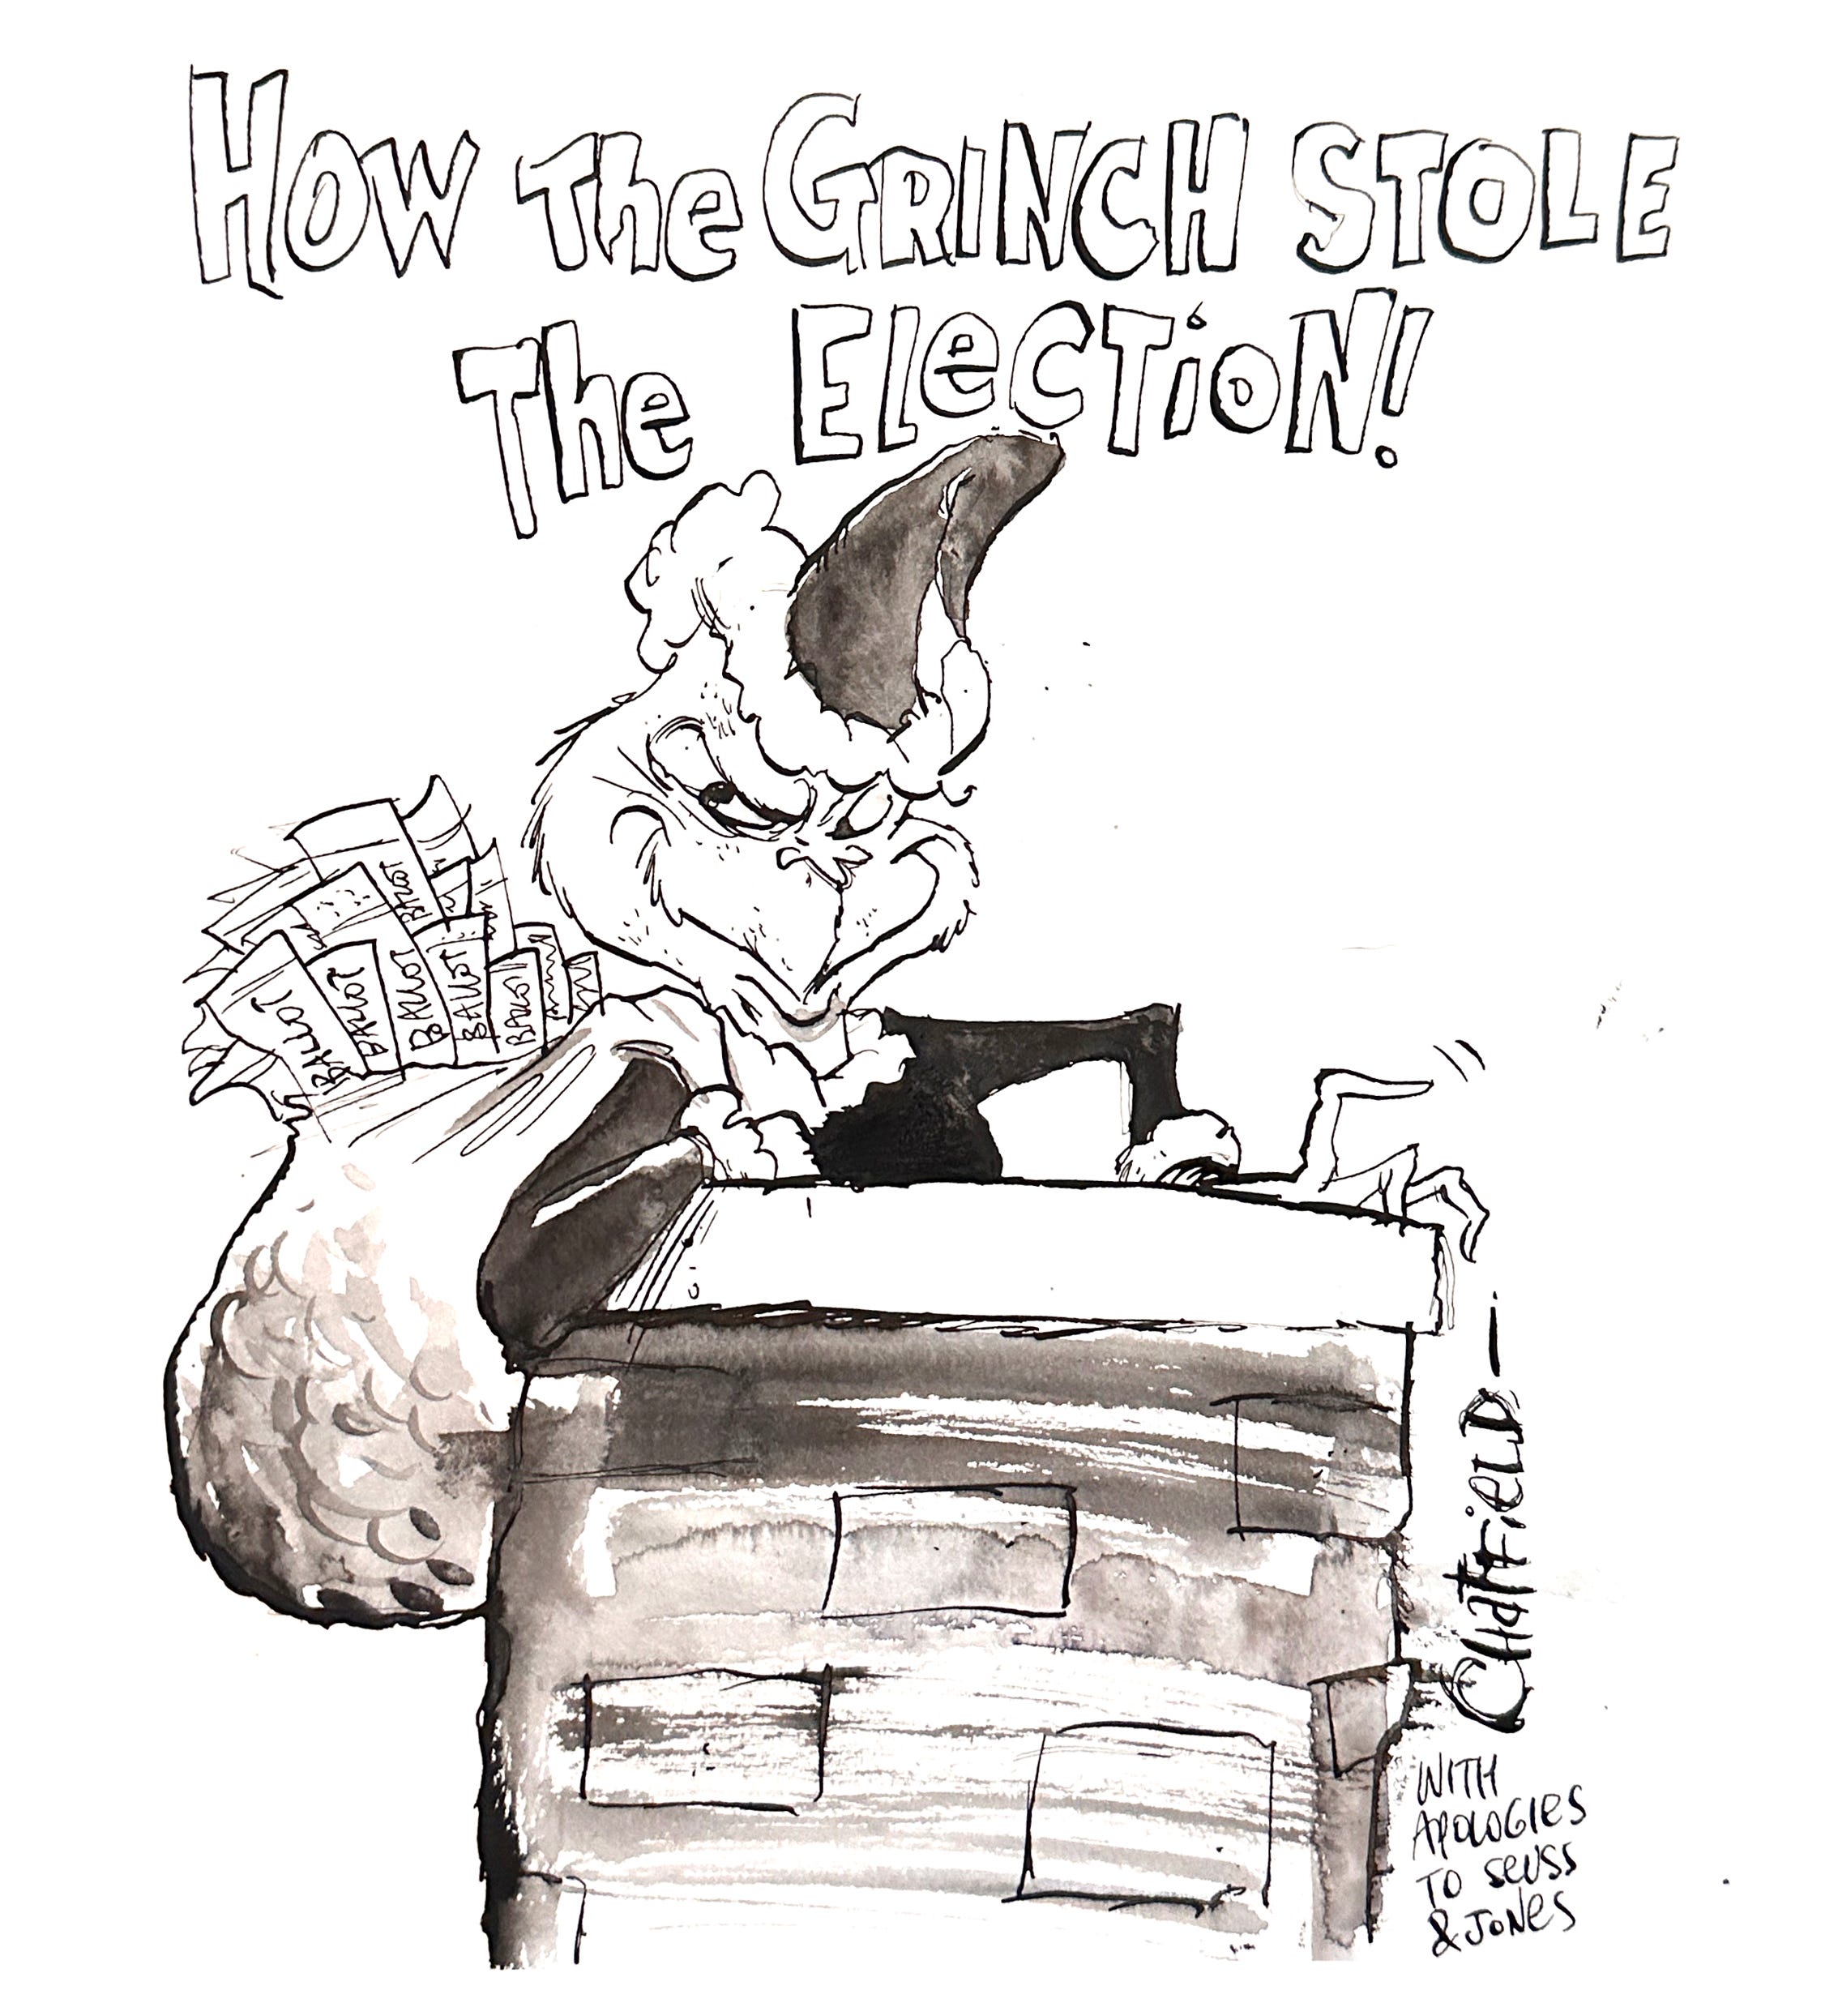 How The GRINCH STOLE
The ElecTioN!
BALLOT
BALLOT
BALLOT
BALLOT
BALLOT
BALLOT
CHATFiELD
WITH
APOLOGIES
TO SEUSS
& JONES